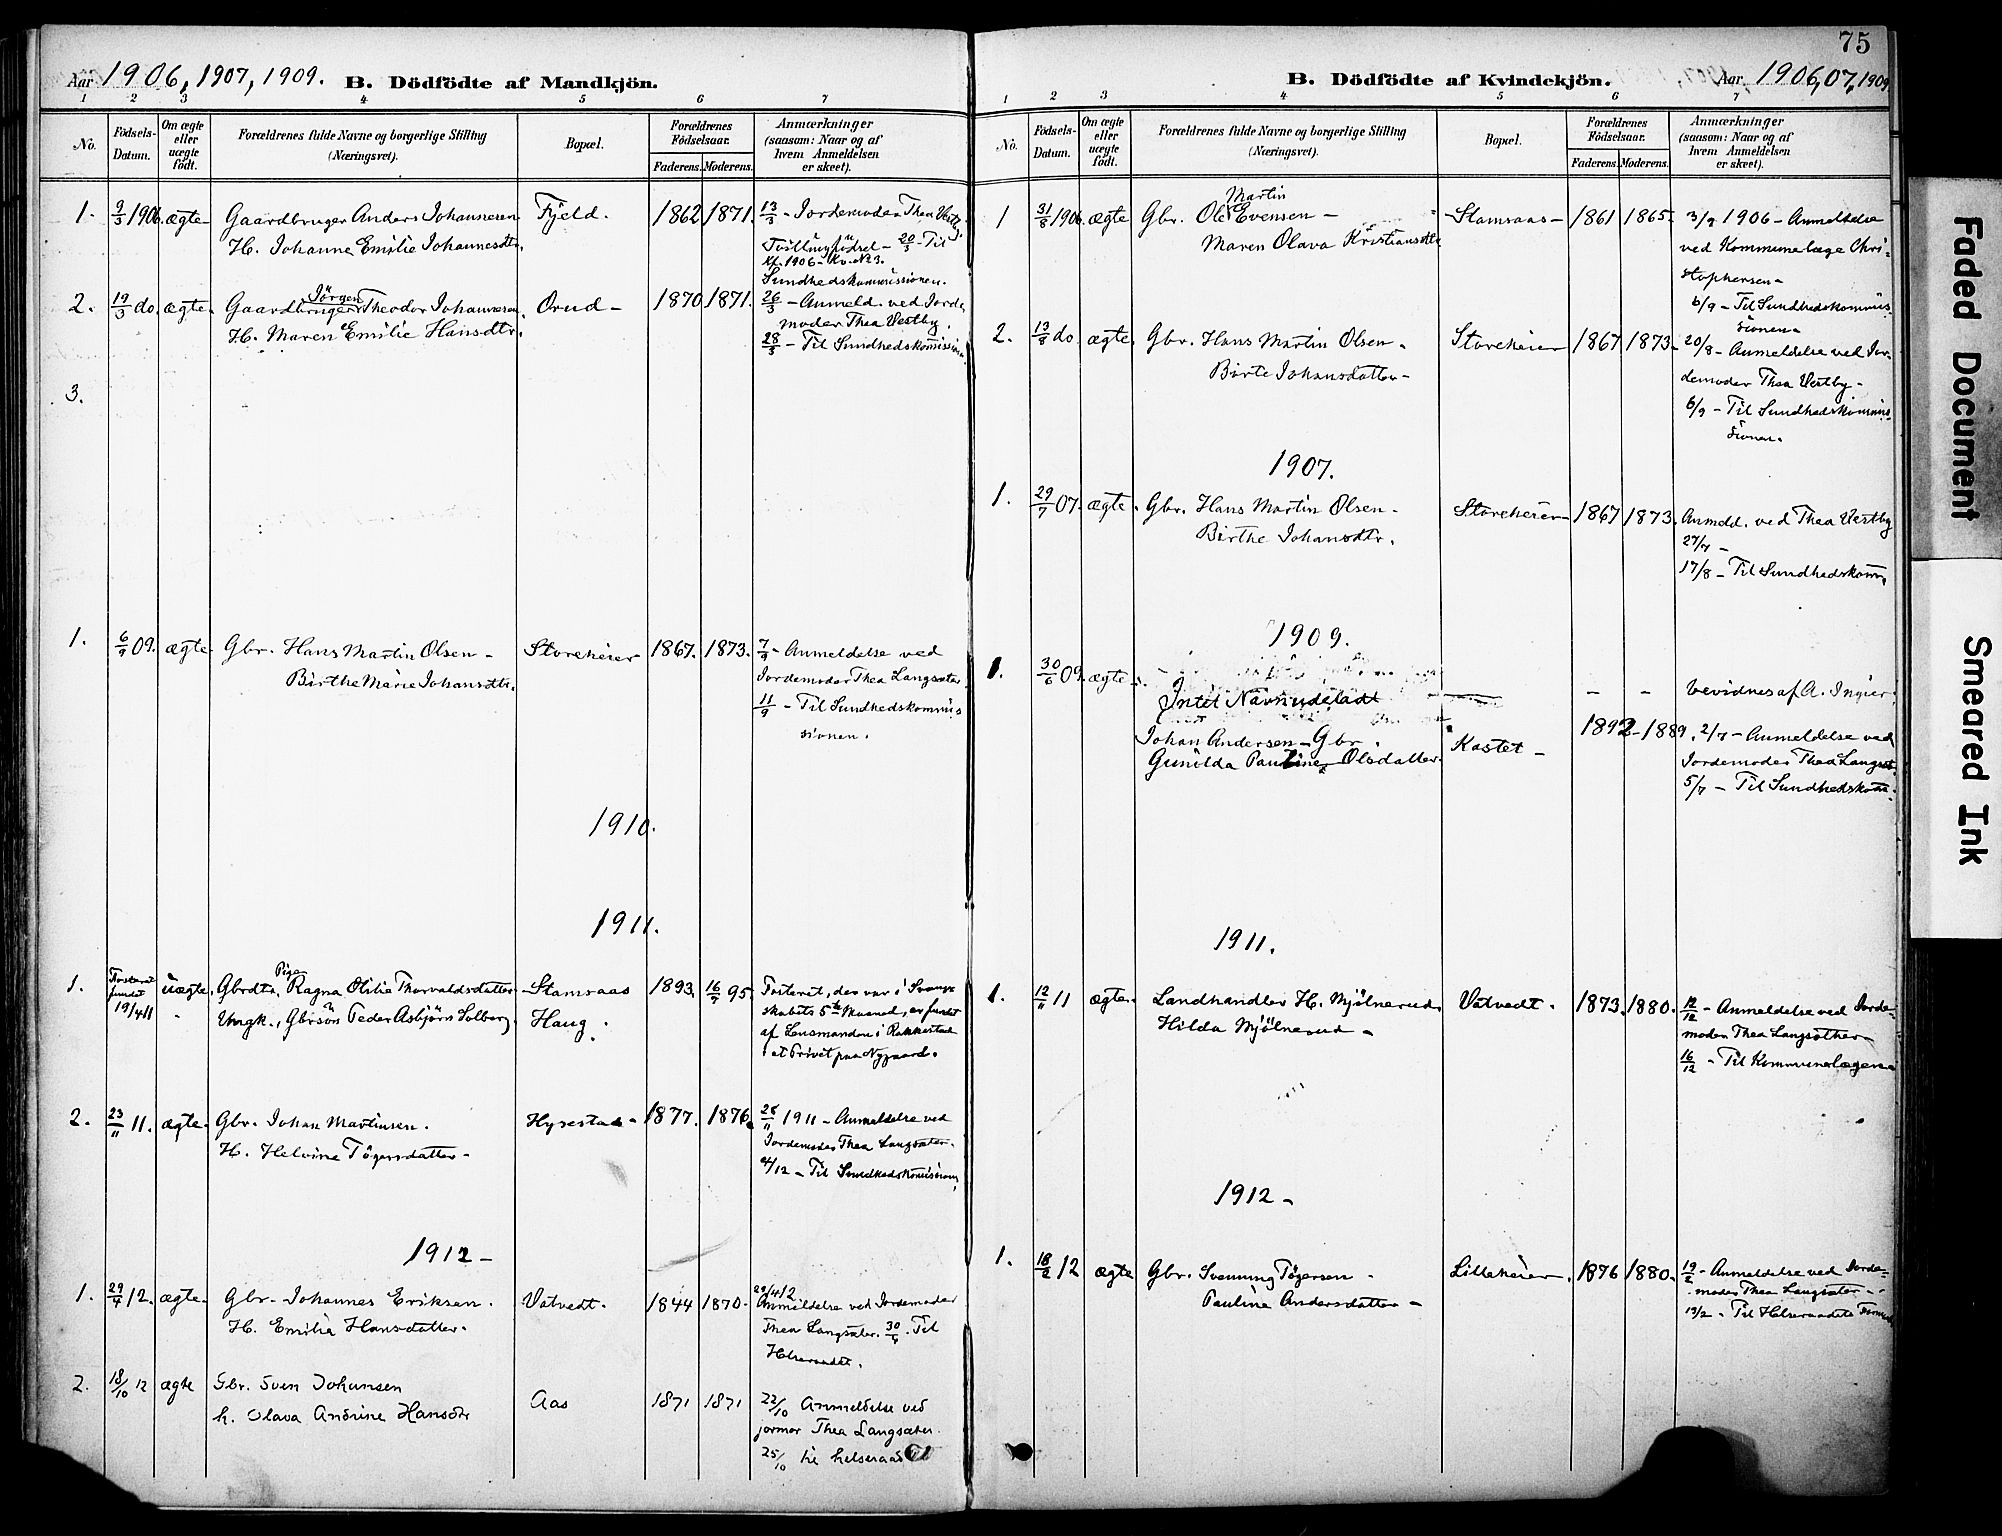 75
Aar 1906, 1907, 1909. B. Dödfödte af Mandkjön.
1 2 3 4 5 6 7
No. Födsels-Datum. Om ægte eller uægte födt. Forældrenes fulde Navne og borgerlige Stilling (Næringsvei). Bopæl. Forældrenes Födselsaar. Faderens. Moderens. Anmærkninger (saasom: Naar og af hvem Anmeldelsen er skeet).
1. 9/3 1906. ægte Gaardbruger Anders Johannesen Fjeld. 1862 1871. 13/3 - Jordemoder Thea Vestby.
H. Johanne Emilie Johannesdtr. Tvillingfödsel - 20/3 - Til
Kf. 1906 - Kv. No 3.
Sundhedskommissionen.
2. 19/3 do. ægte. Gaardbruger Jörgen Theodor Johannesen. Orud - 1870 1871. 26/3 - Anmeld. ved Jorde
H. Maren Emilie Hansdtr. moder Thea Vestby.
28/3 - Til Sundhedskommission
3.
1. 6/9 09. ægte. Gbr. Hans Martin Olsen - Storeheier 1867. 1873. 7/9 - Anmeldelse ved
Birthe Marie Johansdtr. Jordemoder Thea Langsæter
11/9 - Til Sundhedskommis
sionen.
1910.
1911.
1. Fosteret fundet 19/4 11 uægte. Gbrdtr. Pige Ragna Otilie Thorvaldsdatter Stamsaas 1893. 16/7 95. Fosteret, der var i Svanger
Ungk., Gbrsön Peder Asbjörn Solberg. Haug. skabets 5te Maaned, er fundet
af Lensmanden i Rakkestad
i et Privet paa Nygaard.
2. 23/11 11. ægte. Gbr. Johan Martinsen. Hyrestad - 1877. 1876. 28/11 1911 - Anmeldelse ved
H. Helvine Tögersdatter - Jordemoder Thea Langsæter.
4/12 - Til Sundhedskommissionen,
1912 -
1. 29/4 12. ægte. Gbr. Johannes Eriksen. Vatvedt. 1844 1870. 29/4 12
H. Emilie Hansdatter. Anmeldelse ved Jordemoder
Thea Langsæter. 30/4. Til
Helseraadet.
2. 18/10 12 ægte Gbr. Sven Johansen Aas 1871 1871 22/10 Anmeldelse ved
h. Olava Andrine Hansdtr jormor Thea Langsæter.
25/10 til helseraadet
B. Dödfödte af Kvindekjön. Aar 1906, 07, 1909
1 2 3 4 5 6 7
No. Födsels-Datum. Om ægte eller uægte födt. Forældrenes fulde Navne og borgerlige Stilling (Næringsvei). Bopæl. Forældrenes Födselsaar. Faderens. Moderens. Anmærkninger (saasom: Naar og af hvem Anmeldelsen er skeet).
1 31/8 1906. ægte Gbr. Ole Martin Evensen - Stamsaas - 1861 1865. 3/9 1906 - Anmeldelse
Maren Olava Kristiansdtr ved Kommunelæge Chri-
stophersen -
6/9 - Til Sundhedskommis
sionen -
2. 13/8 do ægte. Gbr. Hans Martin Olsen - Storeheier 1867 1873 - 20/8 - Anmeldelse ved Jor-
Birte Johansdatter - demoder Thea Vestby -
6/9 - Til Sundhedskommis
sionen.
1907.
1. 29/7 07. ægte. Gbr. Hans Martin Olsen - Storeheier - 1867 1873. Anmeld. ved Thea Vestby
Birthe Johansdtr. 27/7 -
17/8 - Til Sundhedskomm.
1909.
1. 30/6 09. ægte.
Intet Navn udeladt - - bevidnes af A. Ingier.
Johan Andersen - Gbr. Kastet - 1892 - 1889. 2/7 - Anmeldelse ved
Gunilda Pauline Olsdatter. Jordemoder Thea Langsæt.
5/7 - Til Sundhedskomm.
1911.
1. 12/11 11 ægte. Landhandler H. Mjölnerud Vatvedt. 1873. 1880. 12/12 - Anmeldelse ved Jorde-
Hilda Mjölnerud - moder Thea Langsæther -
16/12 - Til Kommunelægen
1912 -
1. 18/2 12 ægte Gbr. Svenning Tögersen - Lilleheier. 1876 1880. 19/2 - Anmeldelse ved Jorde-
Pauline Andersdatter - moder Thea Langsæter -
19/2 - Til Helseraadets Formand
Faded Document
Smeared Ink